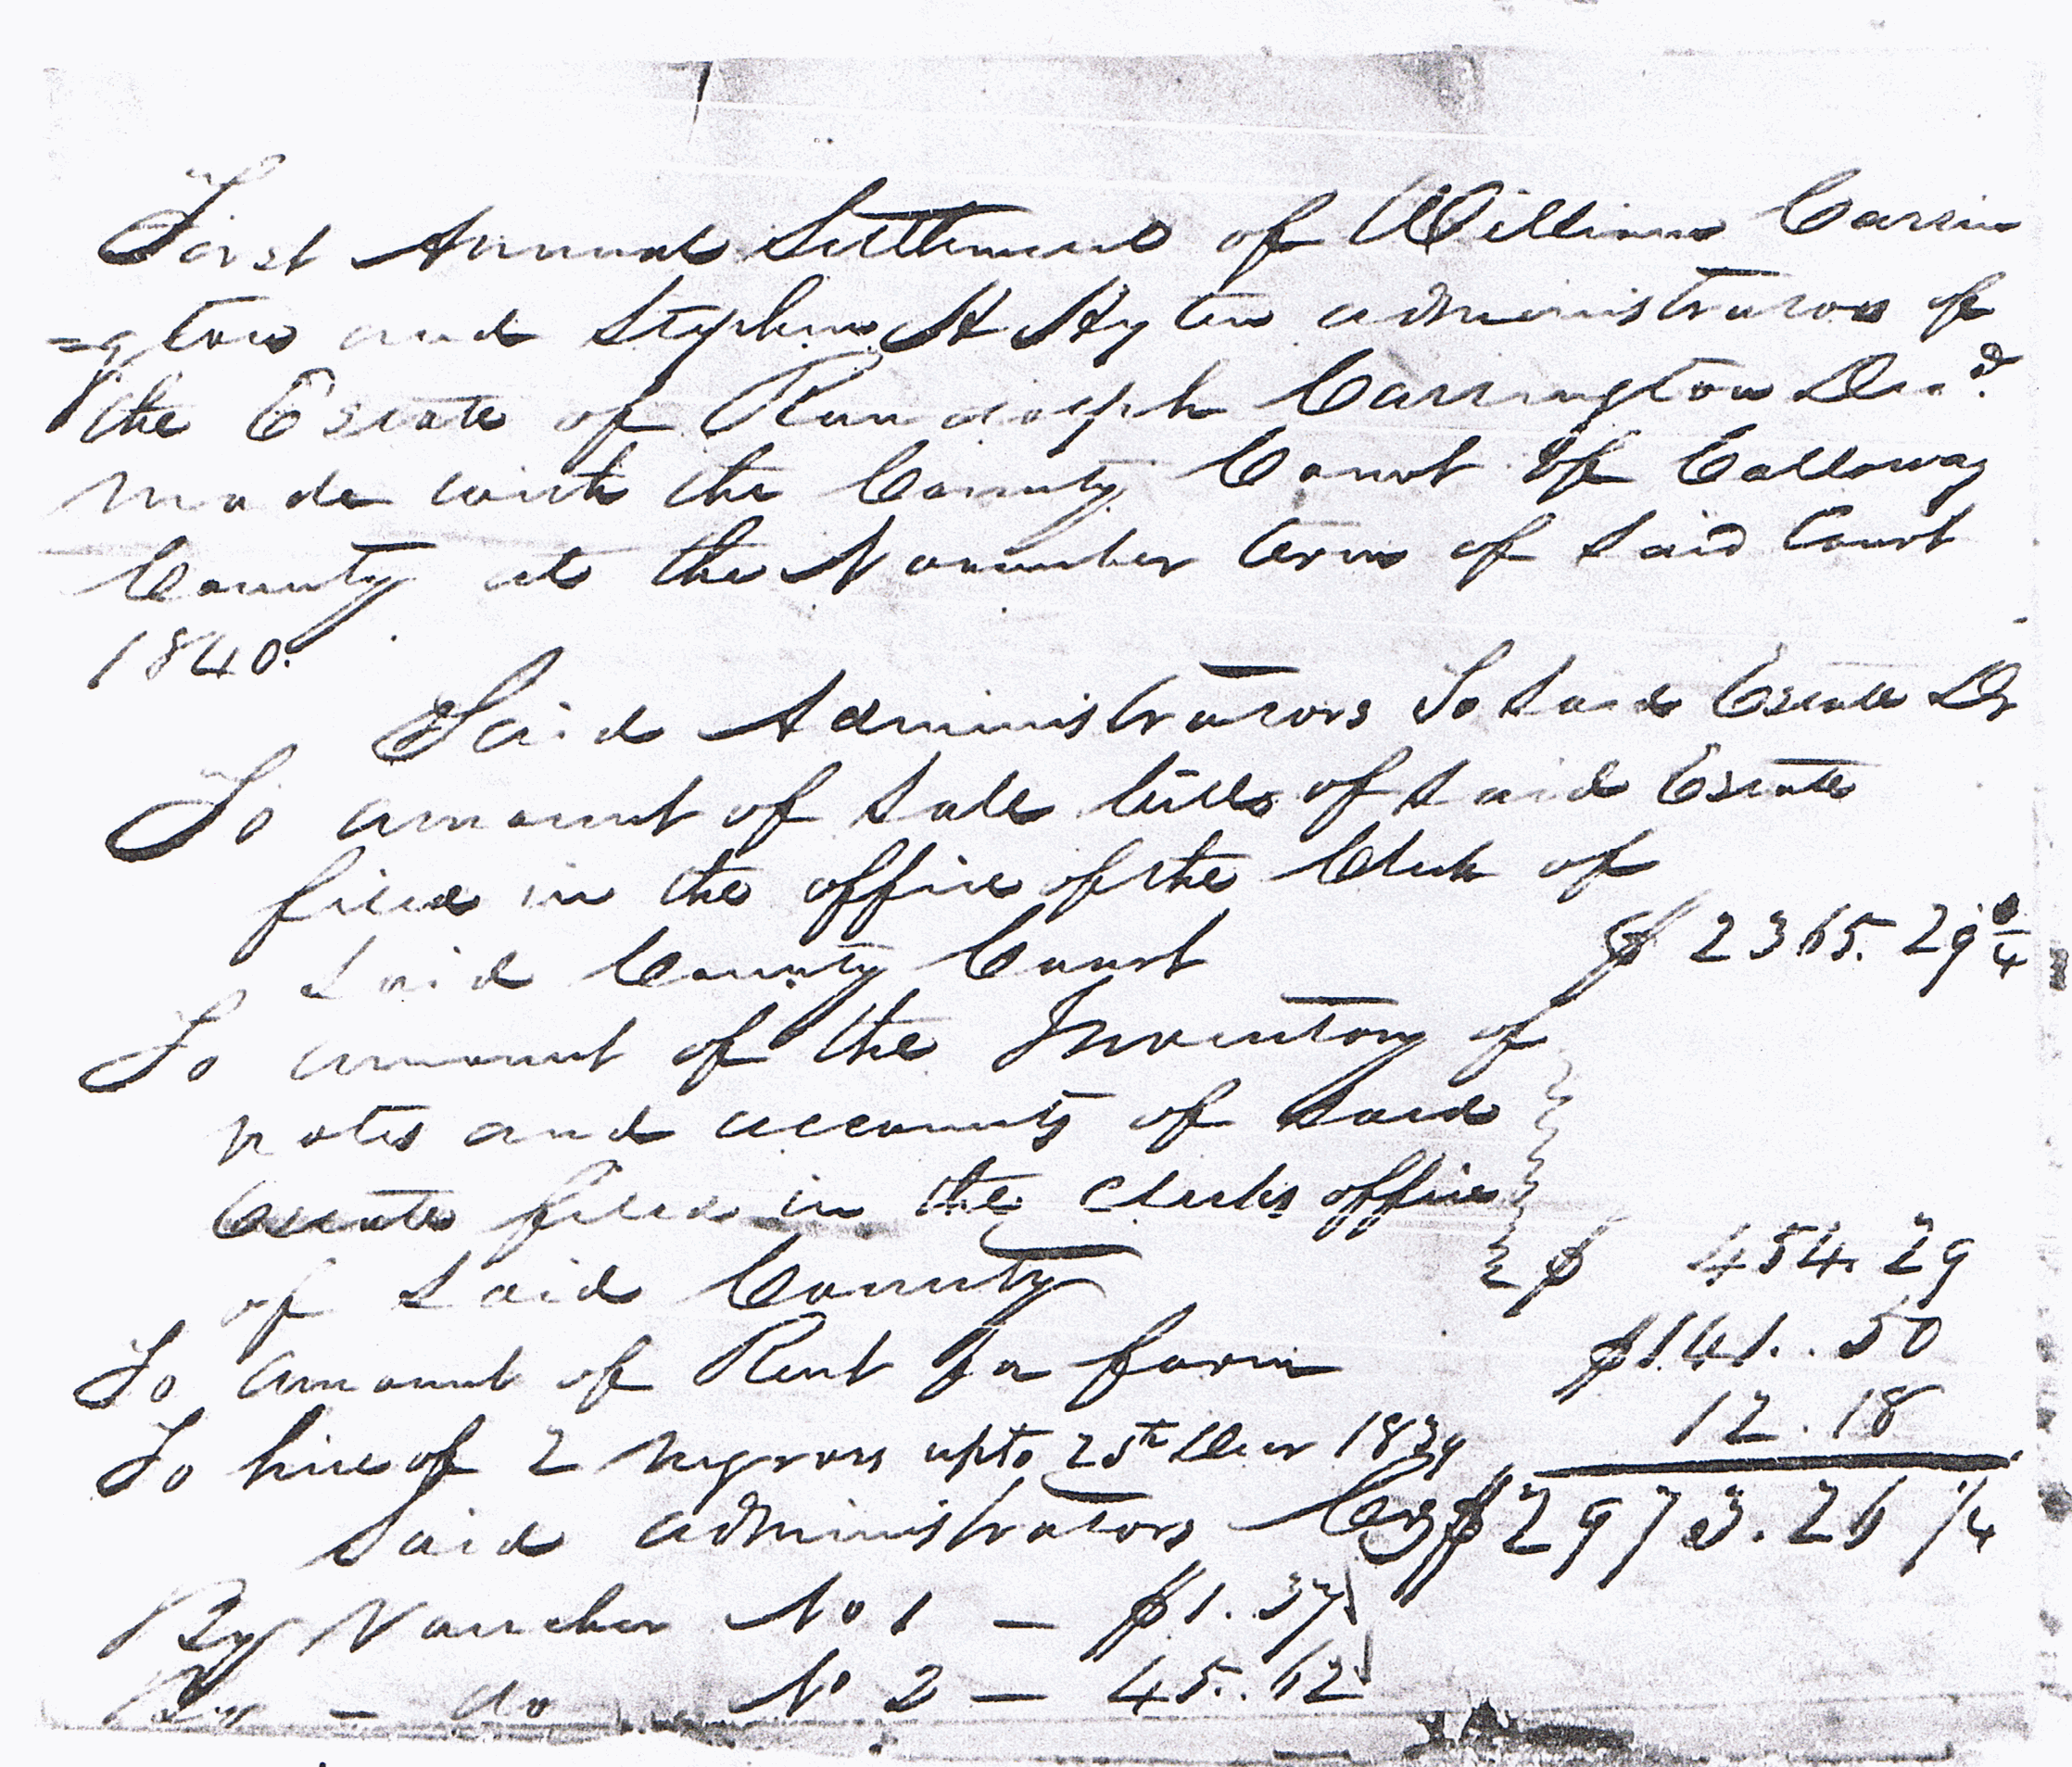 First Annual Settlement of William Carrin
=gton and Stephen H Hyten administrators of
the Estate of Randolph Carrington Decd.
made with the County Court of Calloway
County at the November term of said Court
1840.
Said Administrators To said Estate Dr
To amount of sale bills of said Estate
filed in the office of the Clerk of
said County Court $ 2365.29 1/4
To amount of the Inventory of
notes and accounts of said
Estate filed in the clerks office
of said County $ 454.29
To amount of Rent for farm $141..50
To hire of 2 negroes upto 25th Decr 1839 12.18
Said administrators Cr $2973.26 1/4
By Voucher No 1 — $1.37
By — do No 2 — 45..62